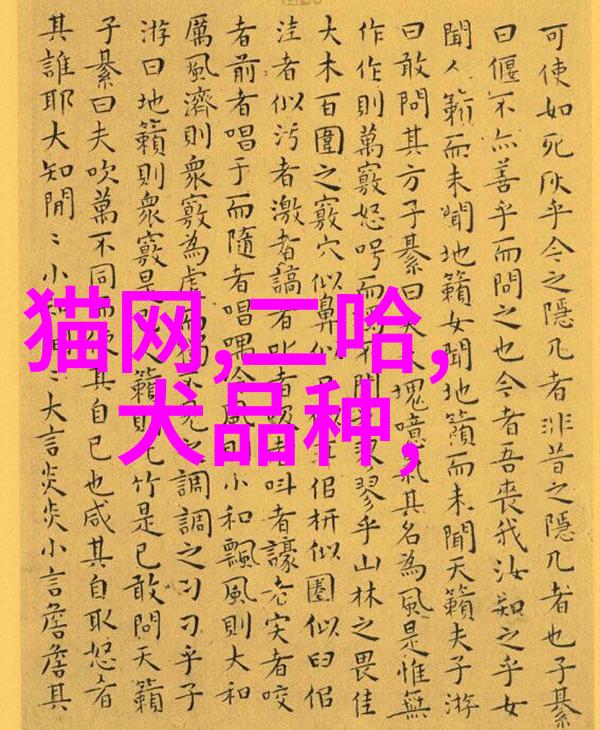 猫网,二哈,
犬品种,
可使如死灰乎今之隱几者非昔之隱几者也子綦
曰偃不亦善乎而問之也今者吾喪我汝知之乎女
聞人籟而未聞地籟女聞地籟而未聞天籟夫子游
曰敢問其方子綦曰大塊噫氣其名為風是惟無
作作則萬竅怒呺而翏乎山林之畏佳
大木百圍之竅穴似鼻似佀枅似圈似臼佀
洼者似污者激者謞者叱者者叫者譹者宎者咬
者前者唱于而隨者唱喁小和飄風則大和
厲風濟則衆竅為虛之調調之刁刁乎子
游曰地籟則衆竅是籟竹是已敢問天籟
子綦曰夫吹萬不同而其自已也咸其自取怒者
其誰耶大知閒〻小知〻大言炎炎小言詹詹其